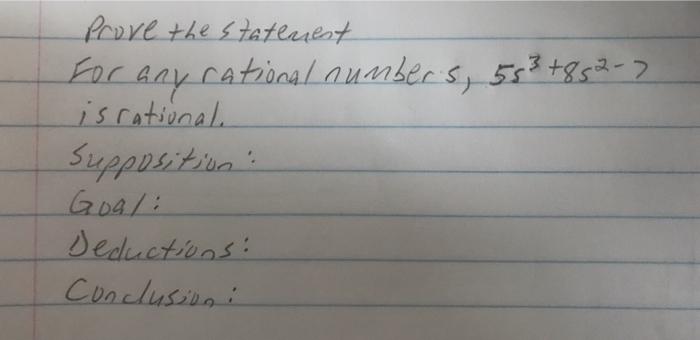 Prove the statement
For any rational number s, 5s³+8s²-7
is rational.
Supposition:
Goal:
Deductions:
Conclusion: